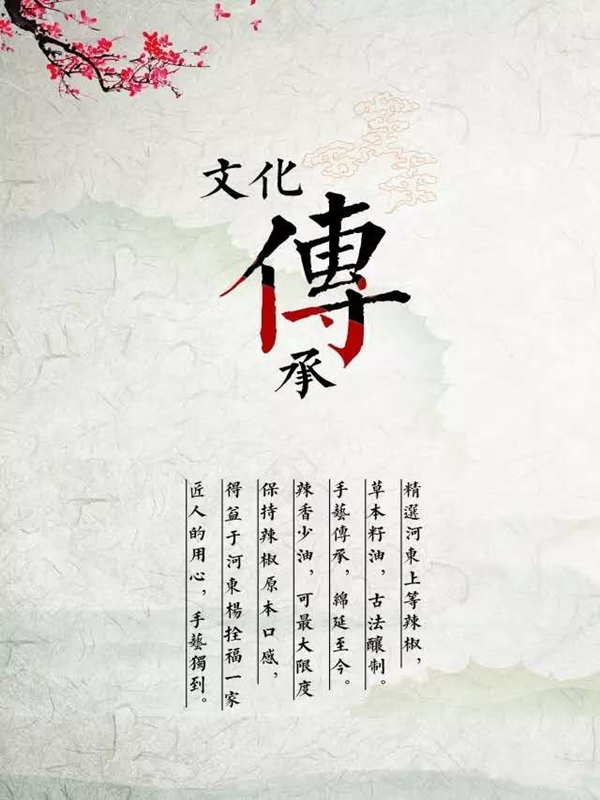 文化
傳
承
精選河東上等辣椒，
草本籽油，古法釀制。
手藝傳承，綿延至今。
辣香少油，可最大限度
保持辣椒原本口感，
得益于河東楊拴福一家
匠人的用心，手藝獨到。